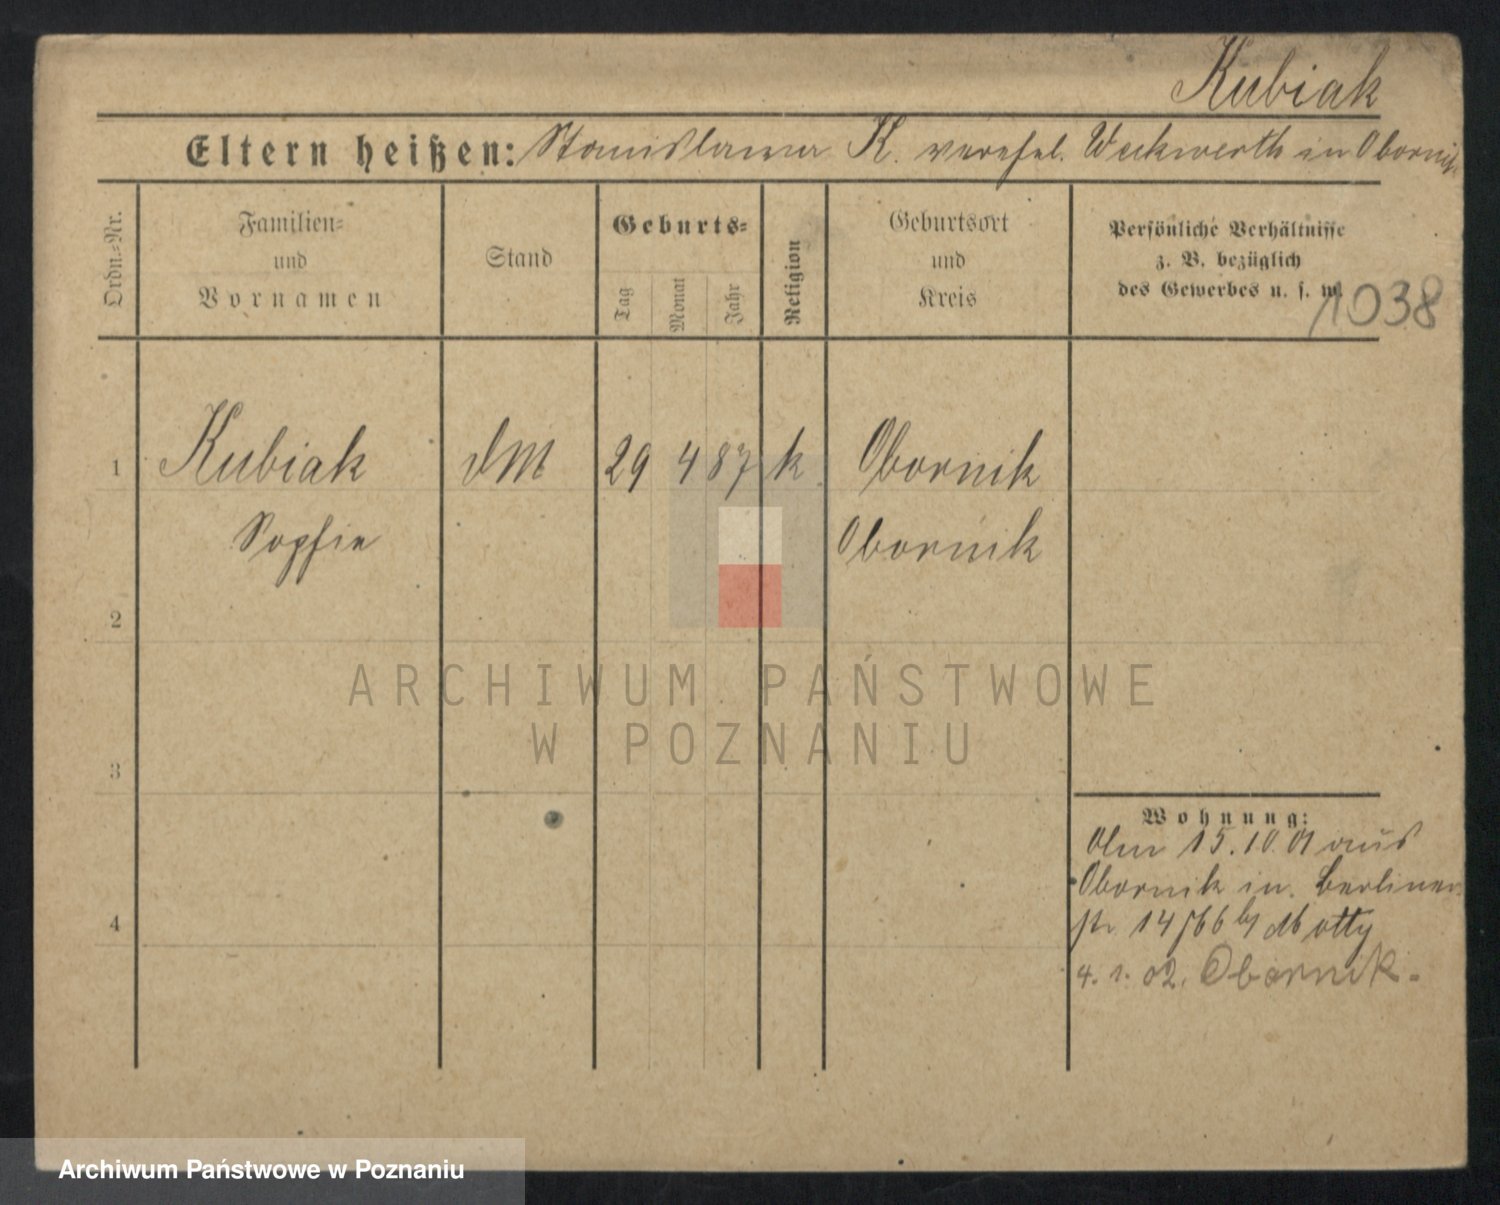 Kubiak
Eltern heißen: Stanislawa K. verehel. Weckwerth in Obornik
Ordn.-Nr.
Familien-
und
Vornamen
Stand
Geburts-
Tag
Monat
Jahr
Religion
Geburtsort
und
Kreis
Persönliche Verhältnisse
z. B. bezüglich
des Gewerbes u. s. w.
1038
1 Kubiak dM 29 4 87 k Obornik
Sophie Obornik
2
ARCHIWUM PAŃSTWOWE
W POZNANIU
3
Wohnung:
15.10.01 aus
Obornik in Berliner
str 14 b/ Motty
4
4. 1. 02. Obornik.
Archiwum Państwowe w Poznaniu